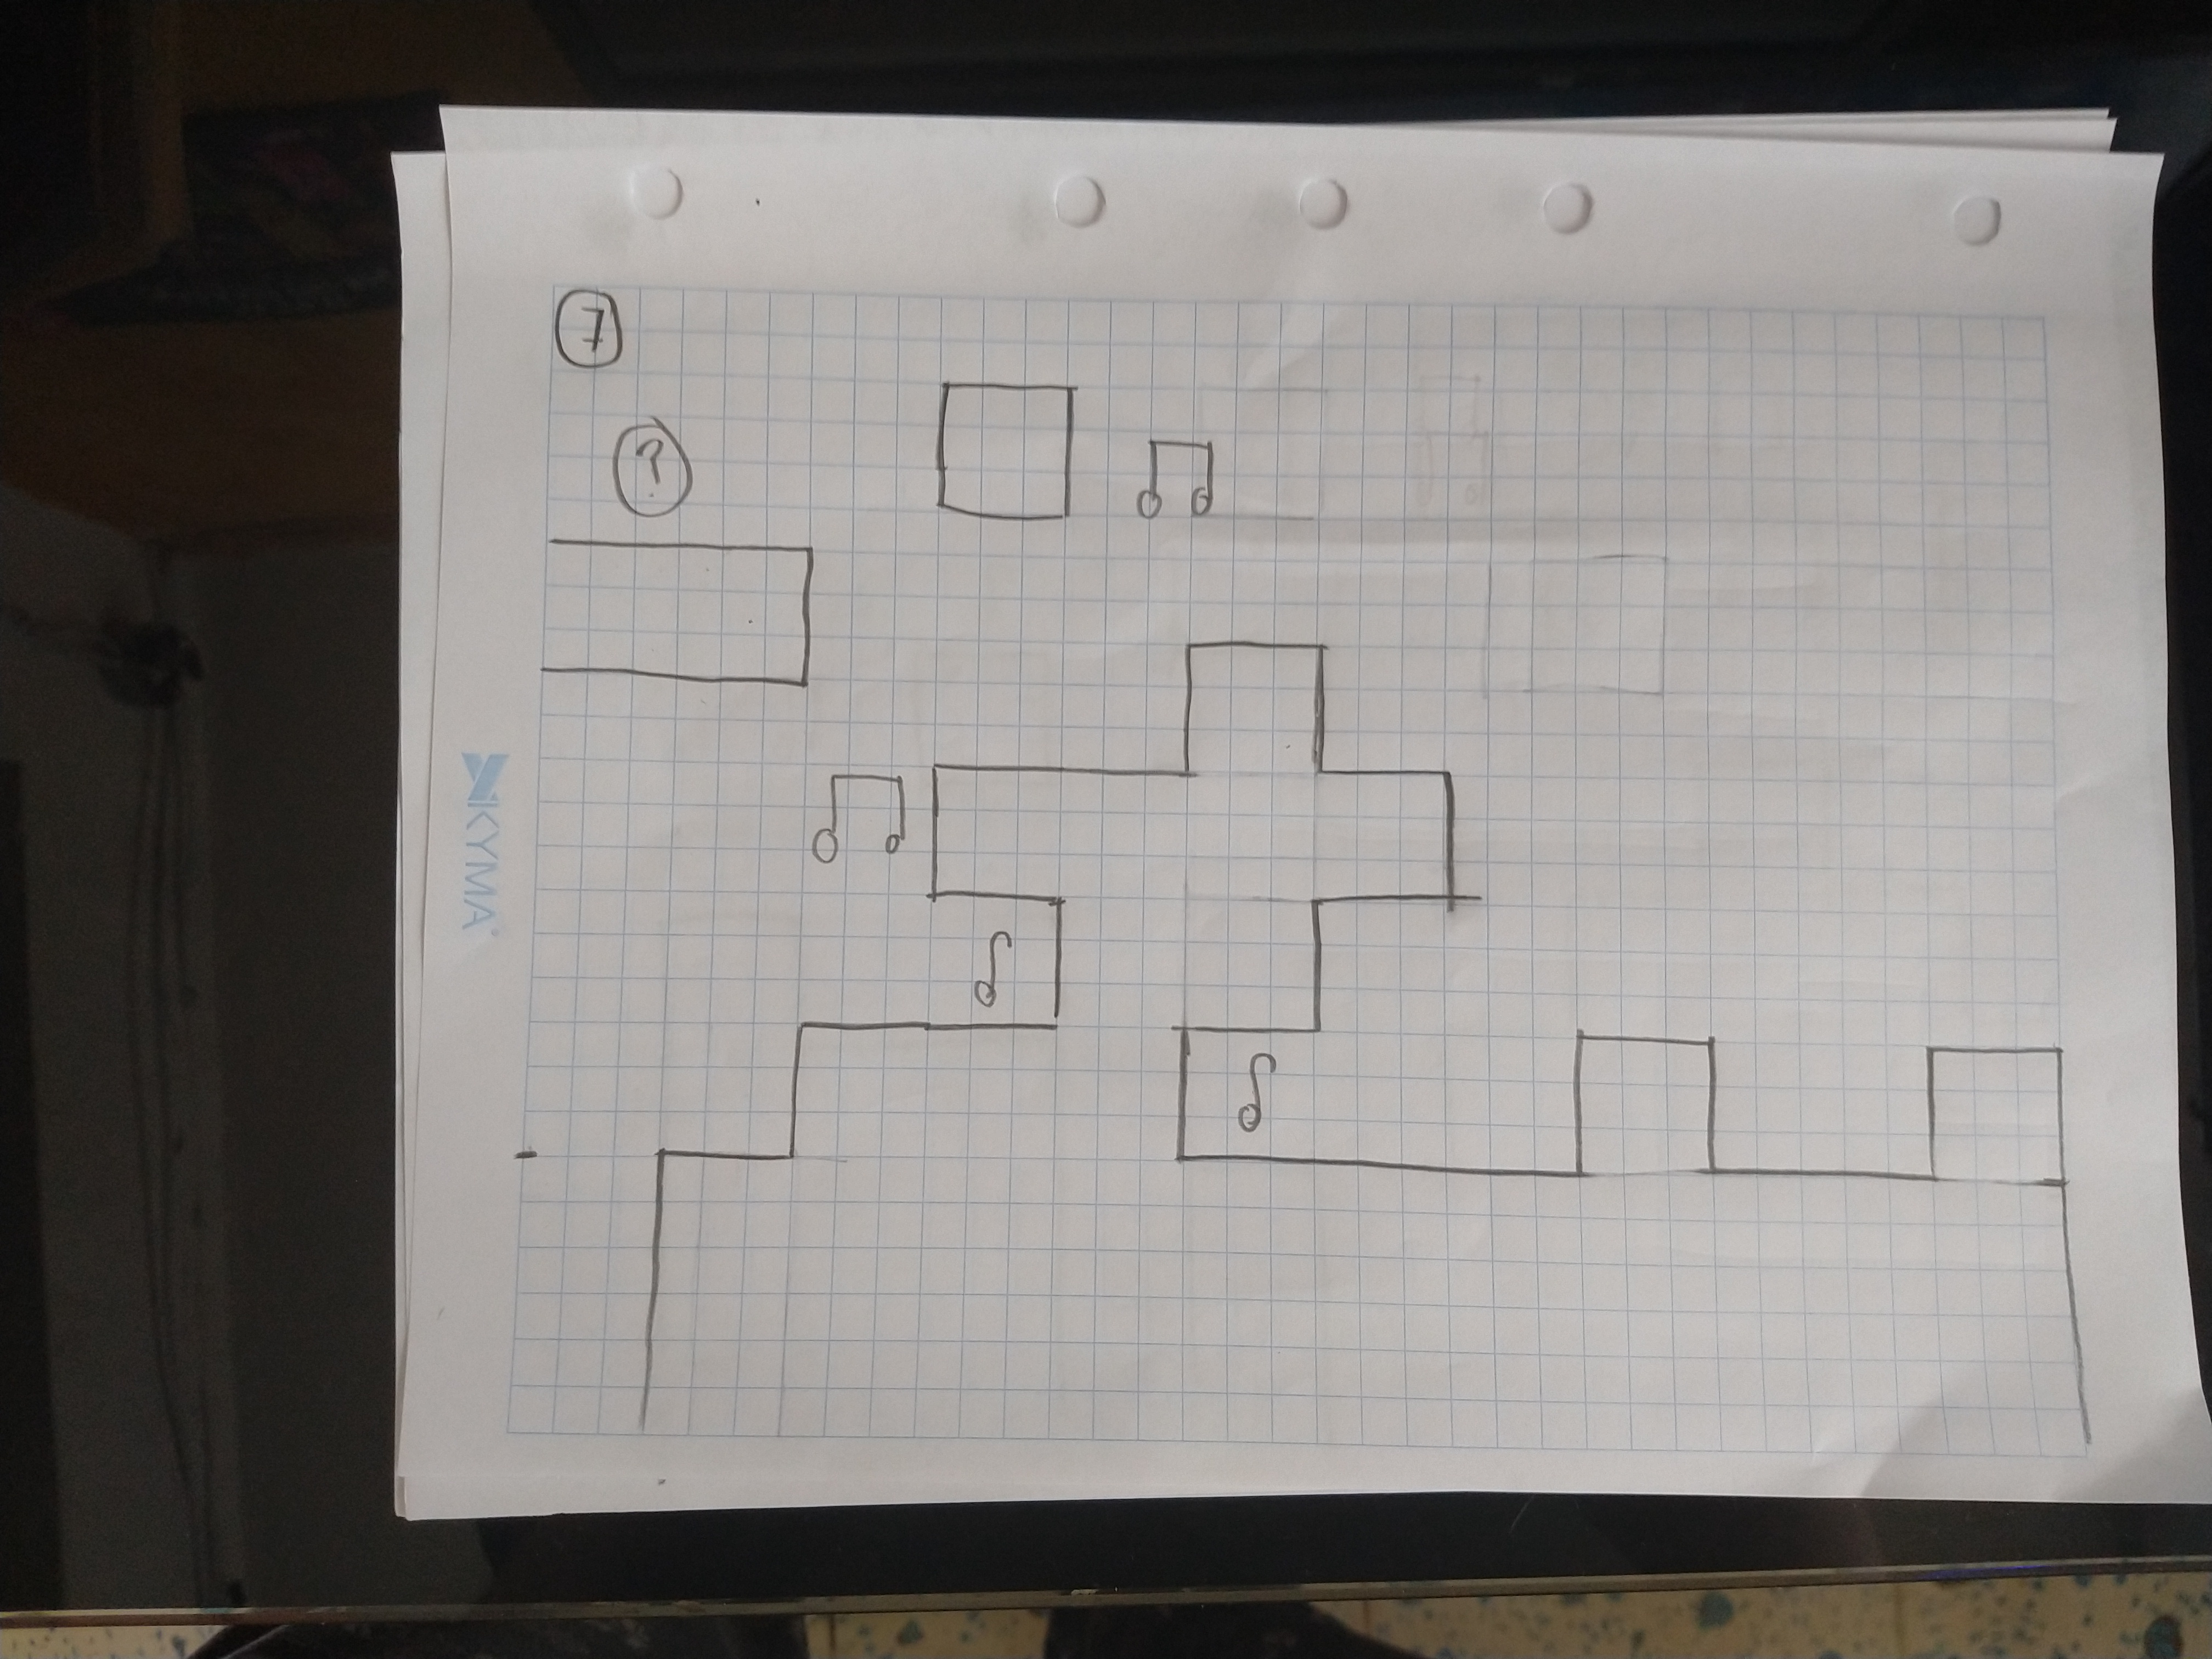 7
?
KYMA